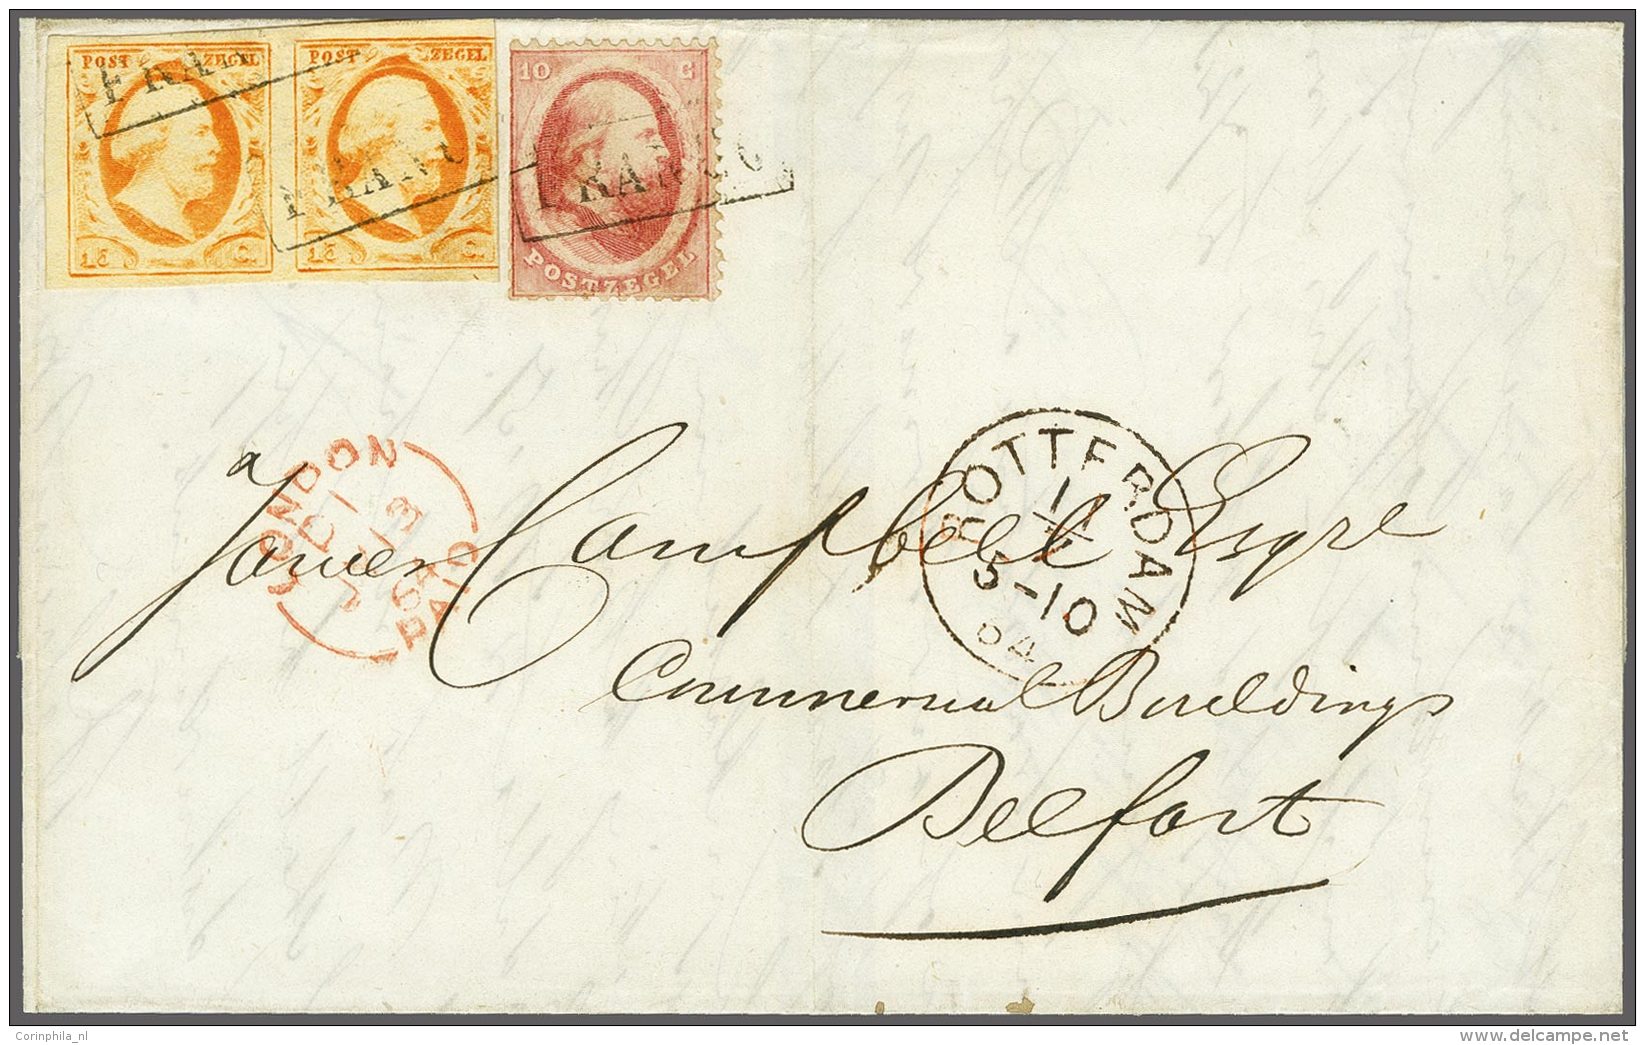 POST ZEGEL POST ZEGEL
10 C
FRAN
FRANCO
FRANCO
15 C. 15 C.
POSTZEGEL
LONDON
PAID
ROTTERDAM
5-10
64
James Campbell Esqre
Commercial Buildings
Belfast
Corinphila_nl
www.delcampe.net